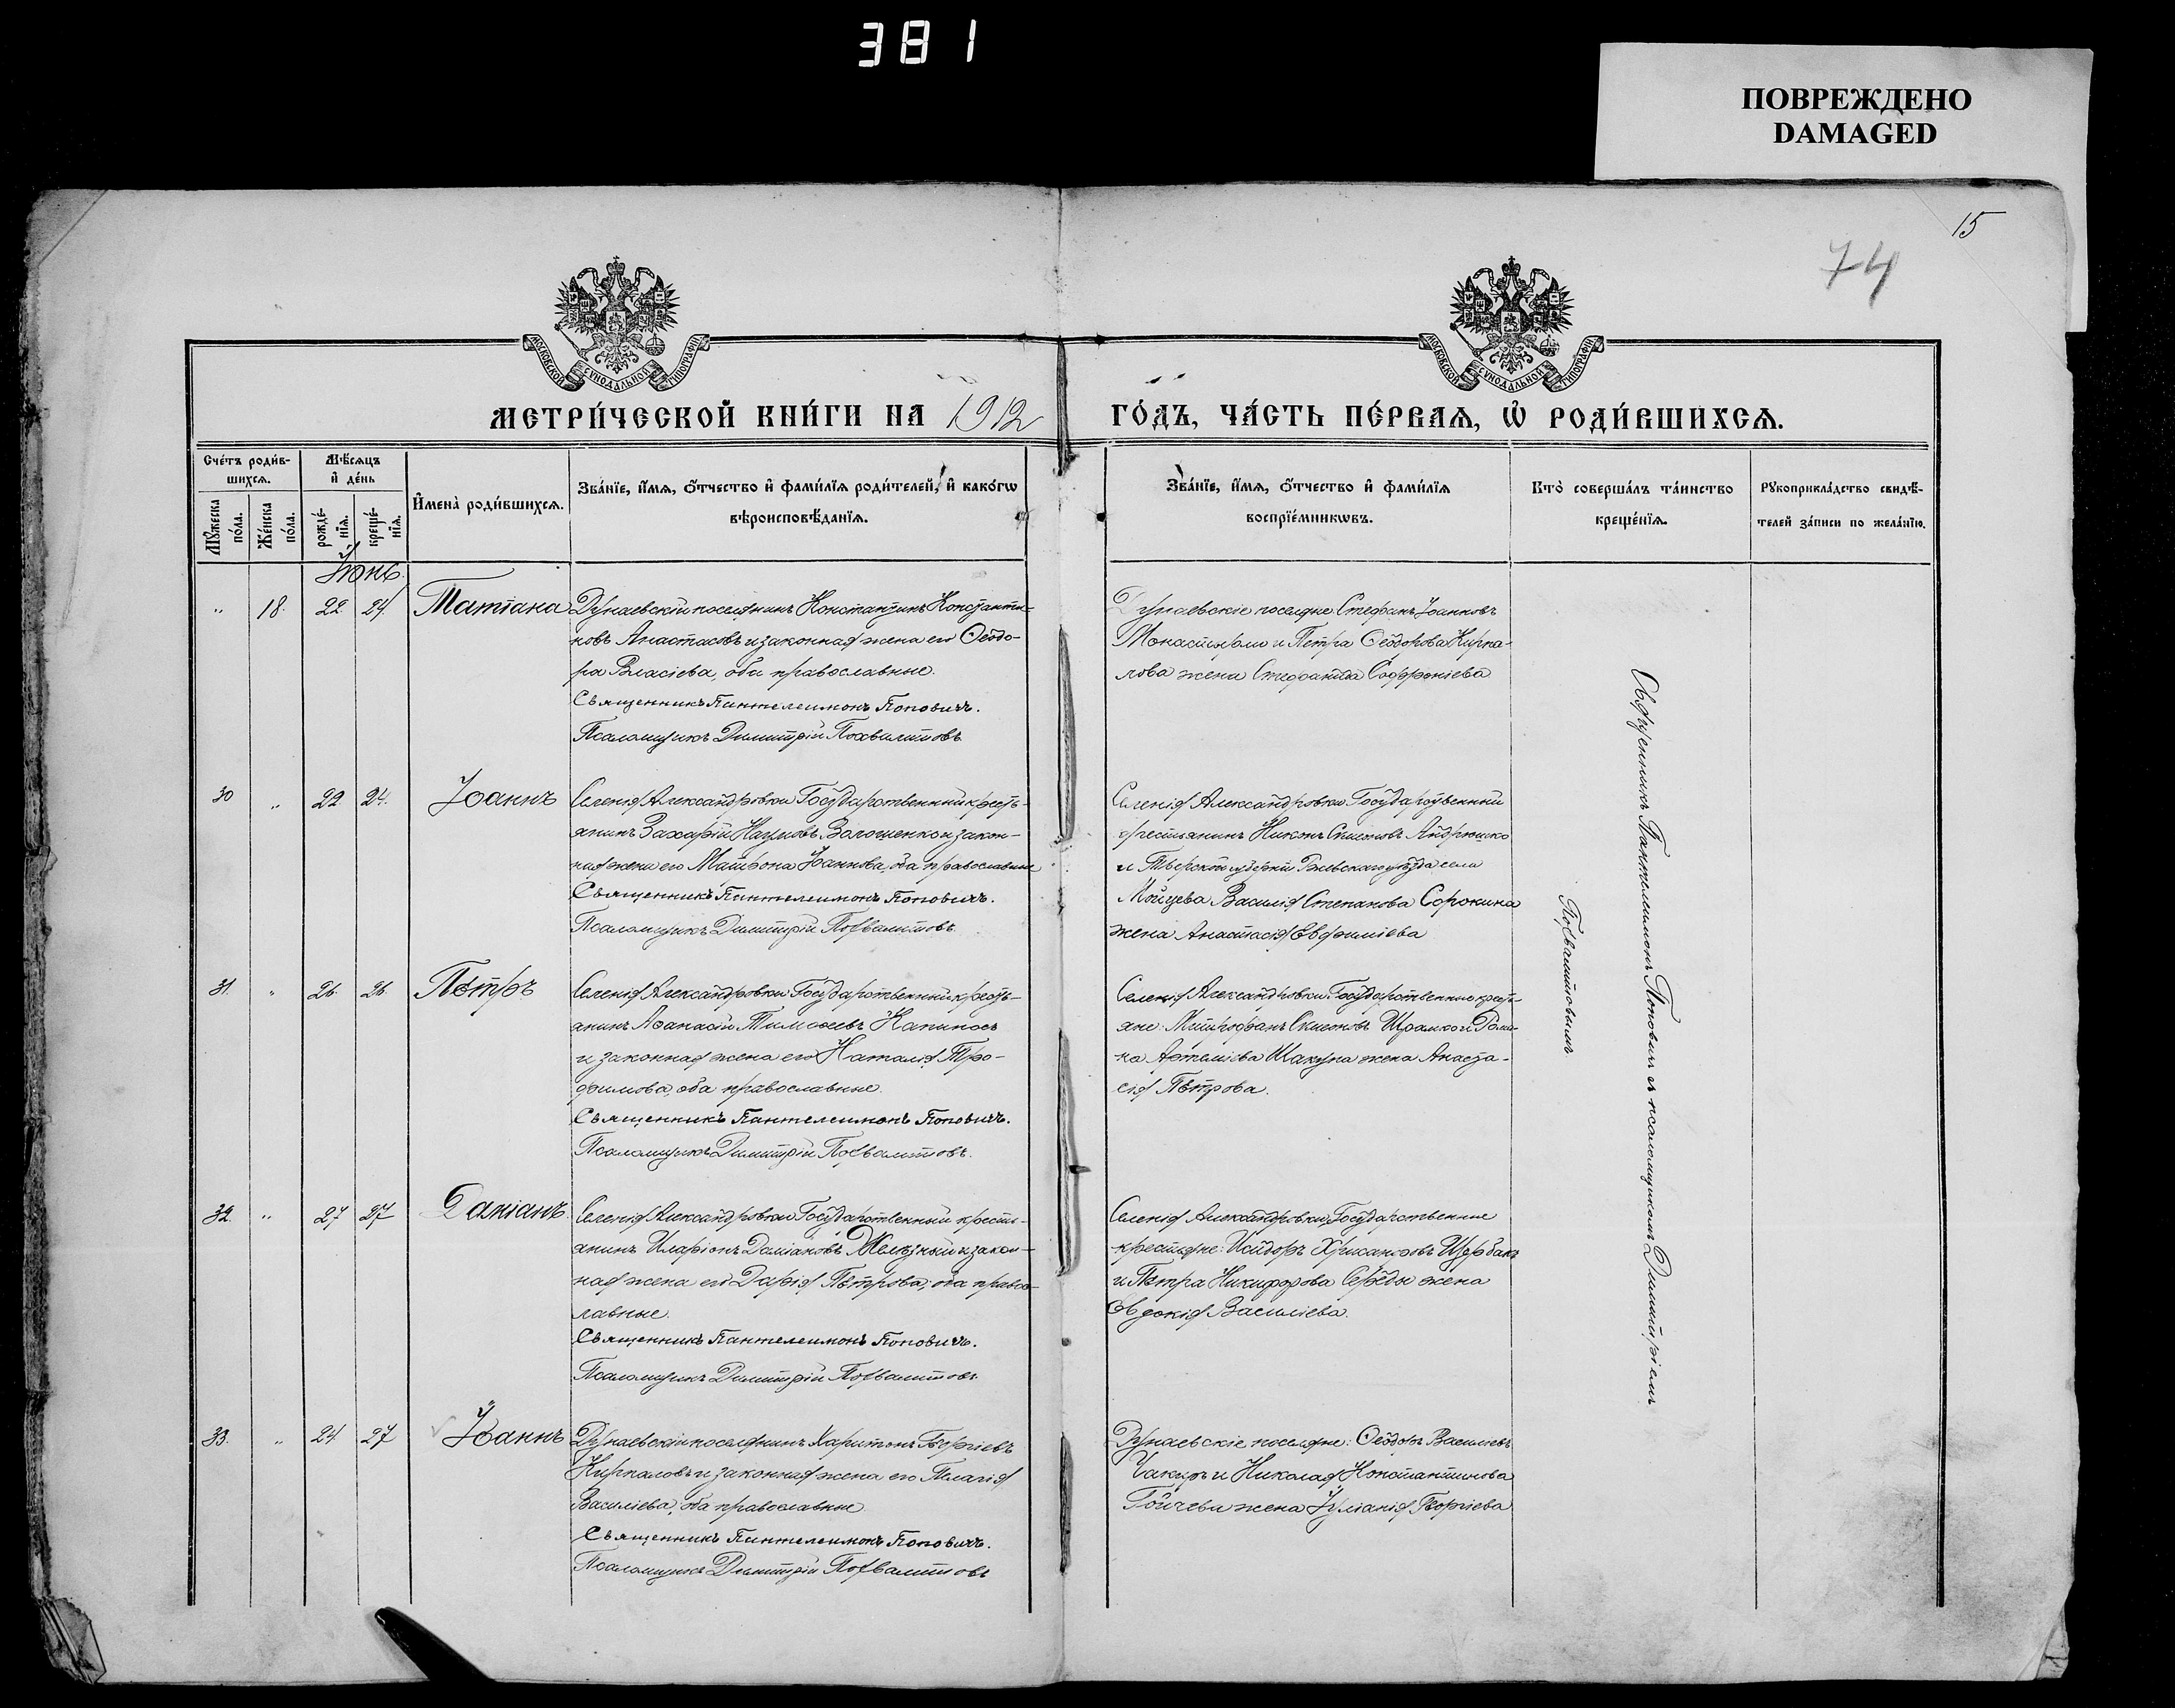 381
ПОВРЕЖДЕНО
DAMAGED
15
74
МОСКОВСКОЙ СУНОДАЛЬНОЙ ТИПОГРАФІИ
МОСКОВСКОЙ СУНОДАЛЬНОЙ ТИПОГРАФІИ
МЕТРИ́ЧЕСКОЙ КНИ́ГИ НА 1912
ГО́ДЪ, ЧА́СТЬ ПЕ́РВАЯ, Ѡ҆ РОДИ́ВШИХСЯ.
Сче́тъ роди́в-
шихся.
Мѣ́сяцъ
и҆ де́нь
Мꙋ́жеска
по́ла.
Же́нска
по́ла.
рожде́-
нїя.
креще́-
нїя.
И҆мена̀ роди́вшихся.
Зва́нїе, и҆́мя, ѻ҆́тчество и҆ фами́лїя роди́телей, и҆ како́гѡ
вѣроисповѣ́данїя.
Зва́нїе, и҆́мя, ѻ҆́тчество и҆ фами́лїя
воспрїе́мникѡвъ.
Кто̀ соверша́лъ та́инство
креще́нїя.
Рꙋкоприкла́дство свидѣ́-
телей за́писи по жела́нїю.
Іюнь.
" 18. 22. 24. Татіана
Дунаевскій поселянинъ Константинъ Константи-
новъ Анастасовъ и законная жена его Ѳеодо-
ра Власіева, оби православные.
Священникъ Пантелеимонъ Поповичъ.
Псаломщикъ Димитрій Похвалитовъ
Дунаевскіе поселяне: Стефанъ Іоанновъ
Монастырли и Петра Ѳеодорова Кирка-
лова жена Стефанида Софроніева
30 " 22 24. Іоаннъ
Селенія Александровки Государственный кресть-
янинъ Захарій Наумовъ Волошенко и закон-
ная жена его Матрона Іоаннова, оба православные
Священникъ Пантелеимонъ Поповичъ.
Псаломщикъ Димитрій Похвалитовъ
Селенія Александровки Государственный
крестьянинъ Никонъ Симеоновъ Андрюшко
и Тверской губерніи Ржевскаго уѣзда села
Василія Степанова Сорокина
жена Анастасія Евфиміева
31. " 26. 26. Петръ
Селенія Александровки Государственный кресть-
янинъ Аѳанасій Тимоѳеевъ Капиносъ
и законная жена его Наталія Тро-
фимова, оба православные.
Священникъ Пантелеимонъ Поповичъ.
Псаломщикъ Димитрій Похвалитовъ.
Селенія Александровки Государственные кресть-
яне: Митрофанъ Симеоновъ Шрамко и Рома-
на Артеміева Шакуна жена Анаста-
сія Петрова.
32. " 27 27 Даміанъ
Селенія Александровки Государственный кресть-
янинъ Иларіонъ Даміановъ Желѣзный и закон-
ная жена его Дарія Петрова, оба правос-
лавные.
Священникъ Пантелеимонъ Поповичъ.
Псаломщикъ Димитрій Похвалитовъ
Селенія Александровки Государственные
крестьяне: Исидоръ Хрисанѳовъ Щербакъ
и Петра Никифорова Середы жена
Евдокія Василіева.
33. " 24 27 Іоаннъ
Дунаевскій поселянинъ Харитонъ Георгіевъ
Киркаловъ и законная жена его Пелагія
Василіева, оба православные
Священникъ Пантелеимонъ Поповичъ.
Псаломщикъ Димитрій Похвалитовъ
Дунаевскіе поселяне: Ѳеодоръ Василіевъ
Чакиръ и Николая Константинова
Гойчева жена Іуліанія Георгіева
Священникъ Пантелеимонъ Поповичъ съ псаломщикомъ Димитріемъ
Похвалитовымъ